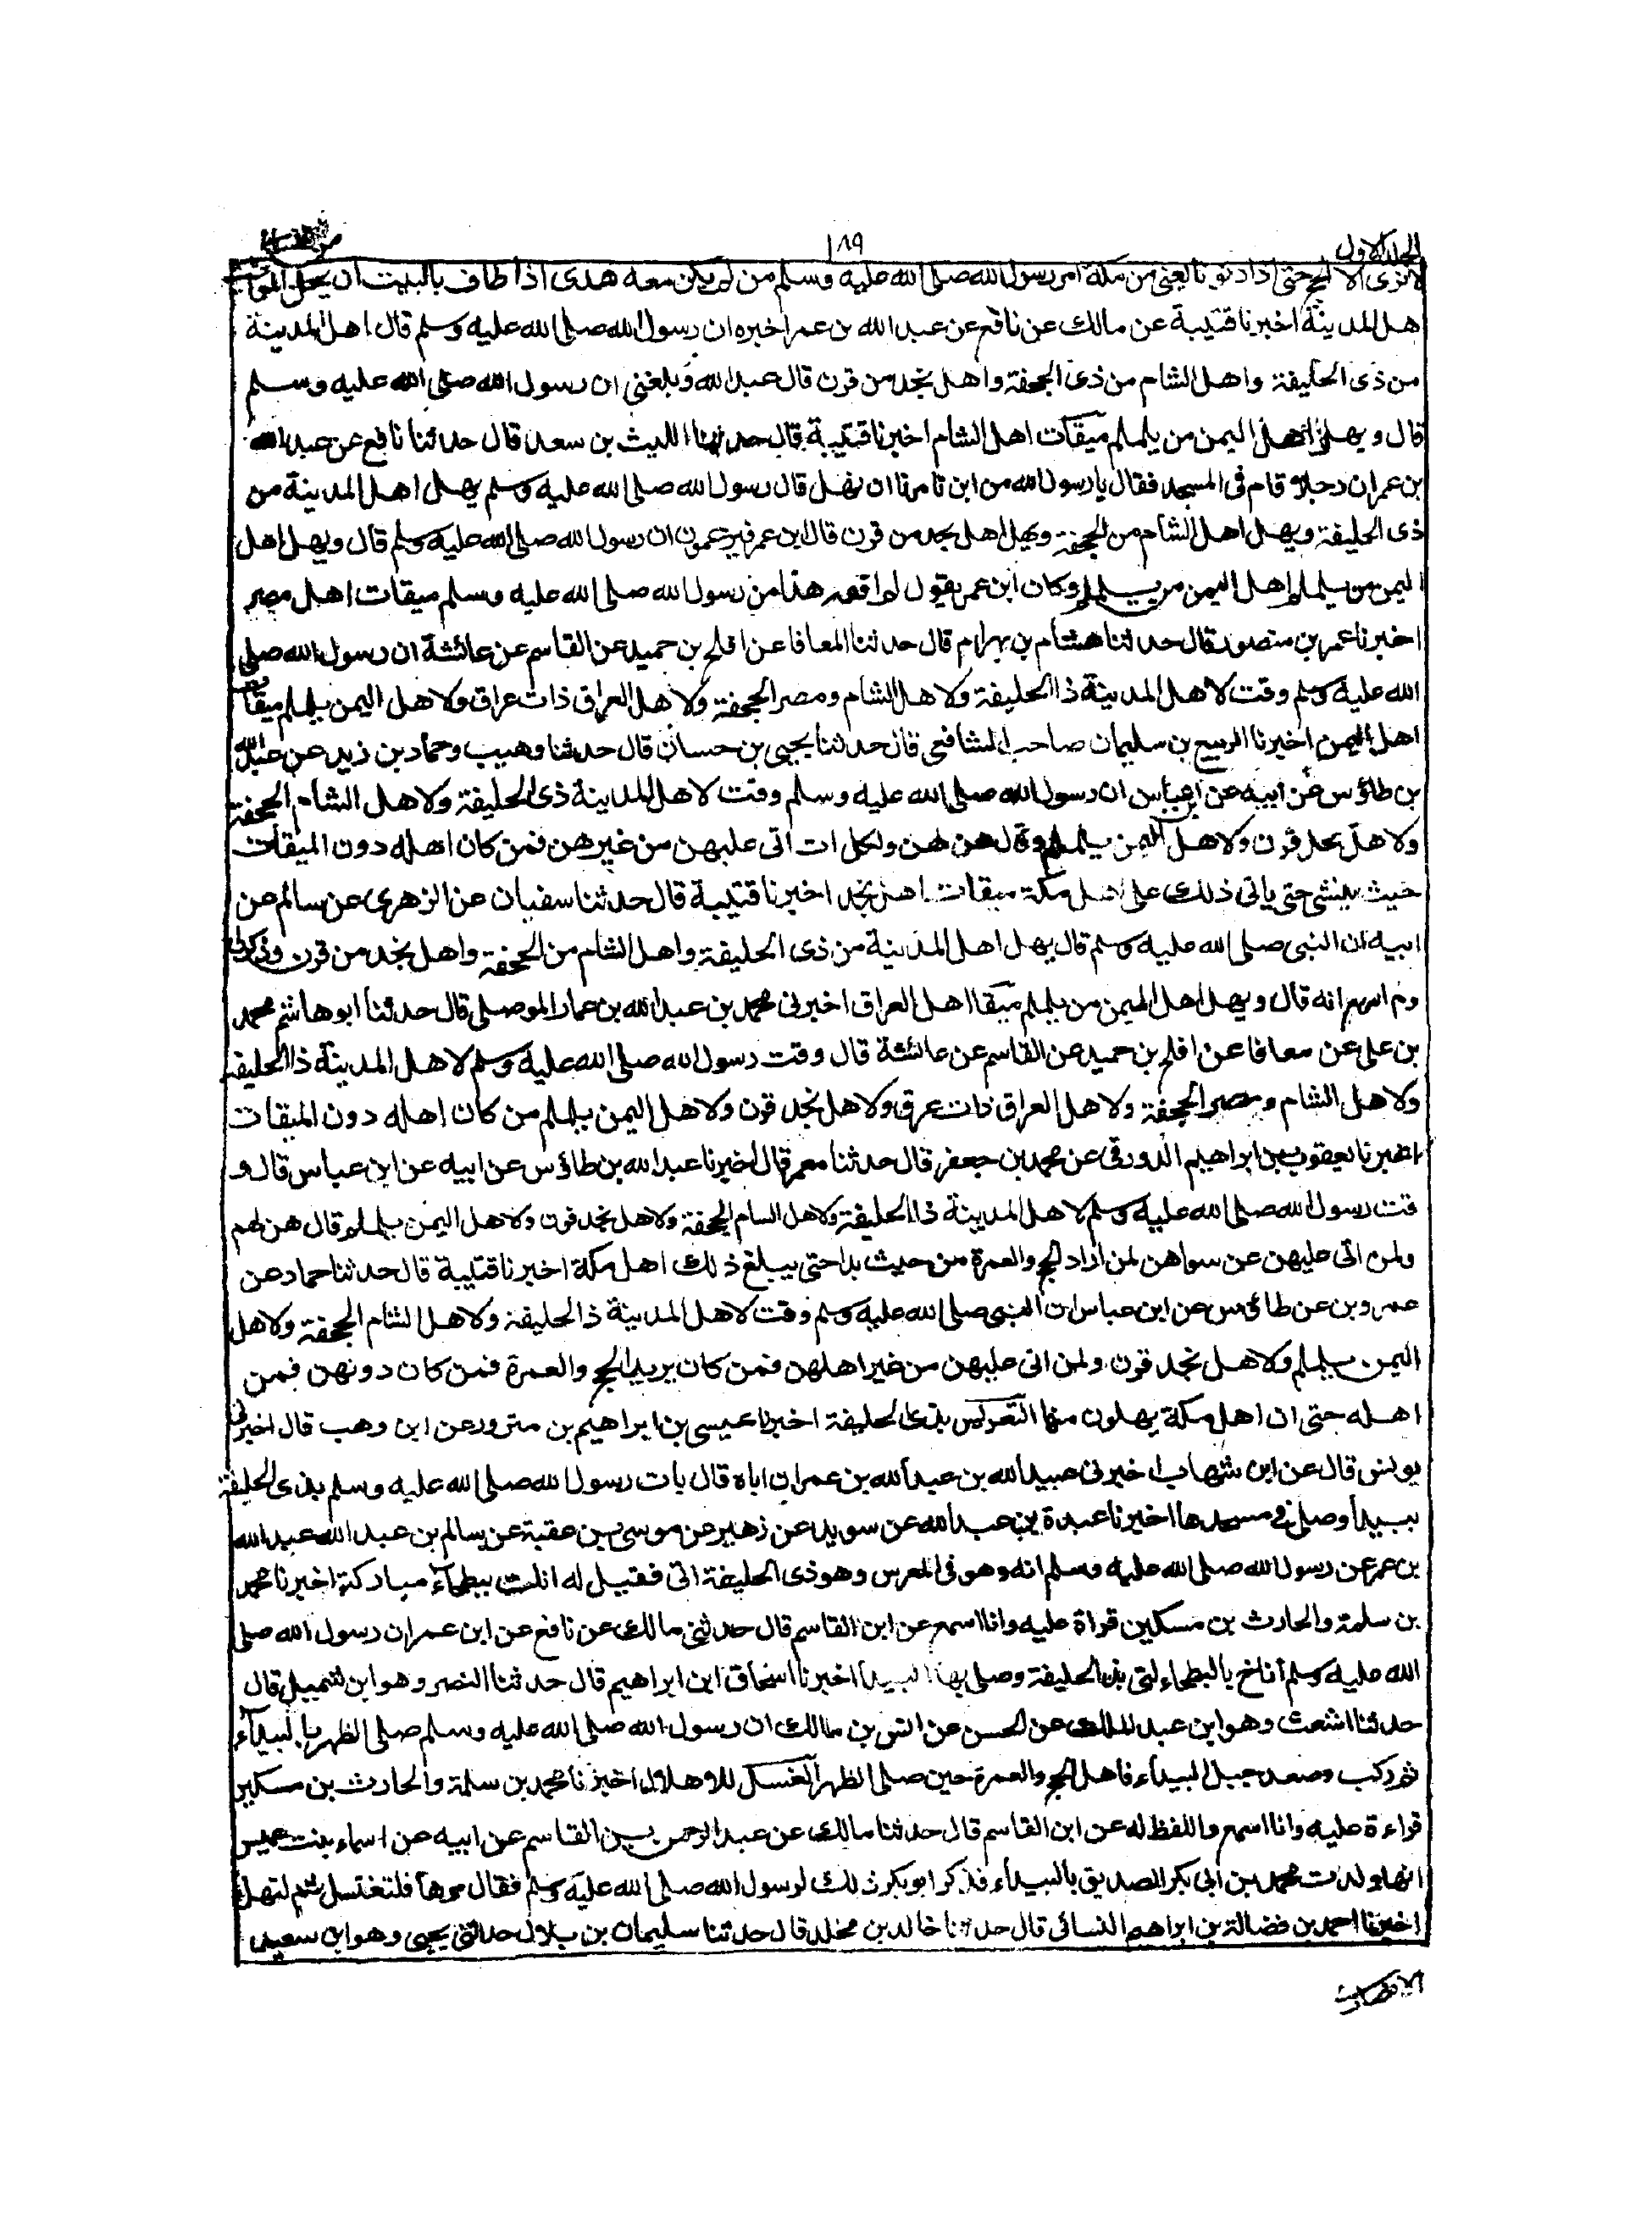 المجلد الاول
١٨٩
من النسائي
لا نرى الا الحج حتى اذا دنونا يعني من مكة امر رسول الله صلى الله عليه وسلم من لم يكن معه هدى اذا طاف بالبيت ان يحل المواقيت
هل المدينة اخبرنا قتيبة عن مالك عن نافع عن عبد الله بن عمر اخبره ان رسول الله صلى الله عليه وسلم قال اهل المدينة
من ذى الحليفة واهل الشام من ذى الجحفة واهل نجد من قرن قال عبد الله وبلغنى ان رسول الله صلى الله عليه وسلم
قال ويهل اهل اليمن من يلملم ميقات اهل الشام اخبرنا قتيبة قال حدثنا الليث بن سعد قال حدثنا نافع عن عبد الله
بن عمر ان رجلا قام فى المسجد فقال يا رسول الله من اين تامرنا ان نهل قال رسول الله صلى الله عليه وسلم يهل اهل المدينة من
ذى الحليفة ويهل اهل الشام من الجحفة ويهل اهل نجد من قرن قال ابن عمر فيزعمون ان رسول الله صلى الله عليه وسلم قال ويهل اهل
اليمن من يلملم اهل اليمن من يلملم وكان ابن عمر يقول لم افقه هذا من رسول الله صلى الله عليه وسلم ميقات اهل مصر
اخبرنا عمر بن منصور قال حدثنا هشام بن بهرام قال حدثنا المعافا عن افلح بن حميد عن القاسم عن عائشة ان رسول الله صلى
الله عليه وسلم وقت لاهل المدينة ذا الحليفة ولاهل الشام ومصر الجحفة ولاهل العراق ذات عراق ولاهل اليمن يلملم ميقات
اهل اليمن اخبرنا الربيع بن سليمان صاحب الشافعى قال حدثنا يحيى بن حسان قال حدثنا وهيب وحماد بن زيد عن عبد الله
بن طاؤس عن ابيه عن ابن عباس ان رسول الله صلى الله عليه وسلم وقت لاهل المدينة ذى الحليفة ولاهل الشام الجحفة
ولاهل نجد قرن ولاهل اليمن يلملم وقال هن لهن ولكل ات اتى عليهن من غيرهن فمن كان اهله دون الميقات
حيث ينشئ حتى ياتى ذلك على اهل مكة ميقات اهل نجد اخبرنا قتيبة قال حدثنا سفيان عن الزهرى عن سالم عن
ابيه ان النبى صلى الله عليه وسلم قال يهل اهل المدينة من ذى الحليفة واهل الشام من الجحفة واهل نجد من قرن وذكر لى
ولم اسمع انه قال ويهل اهل اليمن من يلملم ميقات اهل العراق اخبرنى محمد بن عبد الله بن عمار الموصلى قال حدثنا ابو هاشم محمد
بن على عن معافا عن افلح بن حميد عن القاسم عن عائشة قال وقت رسول الله صلى الله عليه وسلم لاهل المدينة ذا الحليفة
ولاهل الشام ومصر الجحفة ولاهل العراق ذات عرق ولاهل نجد قرن ولاهل اليمن يلملم من كان اهله دون الميقات
اخبرنا يعقوب بن ابراهيم الدورقى عن محمد بن جعفر قال حدثنا معمر قال اخبرنا عبد الله بن طاؤس عن ابيه عن ابن عباس قال و
قت رسول الله صلى الله عليه وسلم لاهل المدينة ذا الحليفة ولاهل الشام الجحفة ولاهل نجد قرن ولاهل اليمن يلملم قال هن لهم
ولمن اتى عليهن عن سواهن لمن اراد الحج والعمرة من حيث بدا حتى يبلغ ذلك اهل مكة اخبرنا قتيبة قال حدثنا حماد عن
عمرو بن عن طاؤس عن ابن عباس ان النبى صلى الله عليه وسلم وقت لاهل المدينة ذا الحليفة ولاهل الشام الجحفة ولاهل
اليمن يلملم ولاهل نجد قرن ولمن اتى عليهن من غير اهلهن فمن كان يريد الحج والعمرة فمن كان دونهن فمن
اهله حتى ان اهل مكة يهلون منها التعريس بذى الحليفة اخبرنا عيسى بن ابراهيم بن مترود عن ابن وهب قال اخبرنى
يونس قال عن ابن شهاب اخبرنى عبيد الله بن عبد الله بن عمر ان اباه قال بات رسول الله صلى الله عليه وسلم بذى الحليفة
ببيدأ وصلى فى مسجدها اخبرنا عبدة بن عبد الله عن سويد عن زهير عن موسى بن عقبة عن سالم بن عبد الله عبد الله
بن عمر عن رسول الله صلى الله عليه وسلم انه وهو فى المعرس وهو ذى الحليفة اتى فقيل له انك ببطحآء مباركة اخبرنا محمد
بن سلمة والحارث بن مسكين قراة عليه وانا اسمع عن ابن القاسم قال حدثنى مالك عن نافع عن ابن عمر ان رسول الله صلى
الله عليه وسلم أناخ بالبطحاء لتى بذى الحليفة وصلى بها البيدأ اخبرنا اسحاق ابن ابراهيم قال حدثنا النضر وهو ابن شميل قال
حدثنا اشعث وهو ابن عبد الملك عن الحسن عن انس بن مالك ان رسول الله صلى الله عليه وسلم صلى الظهر بالبيدآء
ثم ركب وصعد جبل البيدآء فاهل بالحج والعمرة حين صلى الظهر الغسل للاهلال اخبرنا محمد بن سلمة والحارث بن مسكين
قراءة عليه وانا اسمع واللفظ له عن ابن القاسم قال حدثنا مالك عن عبد الرحمن بن القاسم عن ابيه عن اسماء بنت عميس
انها ولدت محمد بن ابى بكر الصديق بالبيدأء فذكر ابو بكر ذلك لرسول الله صلى الله عليه وسلم فقال مرها فلتغتسل ثم لتهل
اخبرنا احمد بن فضالة بن ابراهيم النسائى قال حدثنا خالد بن مخلد قال حدثنا سليمان بن بلال حدثنى يحيى وهو ابن سعيد
الانصارى